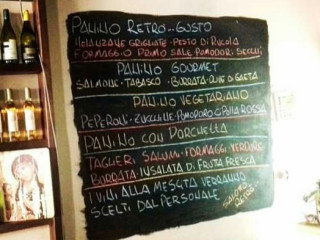 PANINO RETRO...GUSTO
MELANZANE GRIGLIATE · PESTO DI RUCOLA
FORMAGGIO PRIMO SALE · POMODORI SECCHI
PANINO GOURMET
SALMONE · TABASCO · BURRATA · OLIVE DI GAETA
PANINO VEGETARIANO
PEPERONI · ZUCCHINE · POMODORO CIPOLLA ROSSA
PANINO CON PORCHETTA
TAGLIERI SALUMI · FORMAGGI VERDURE
BURRATA · INSALATA DI FRUTTA FRESCA
I VINI ALLA MESCITA VERRANNO
SCELTI DAL PERSONALE